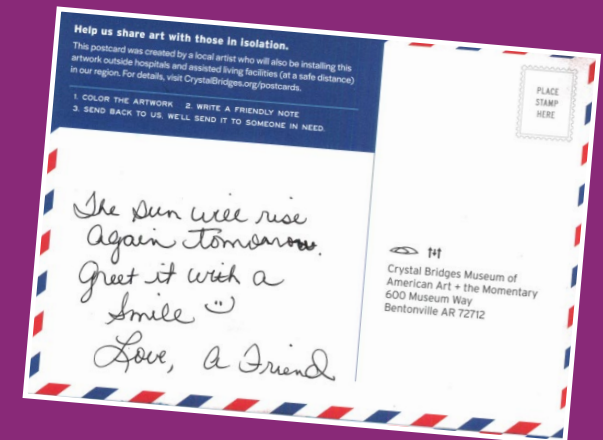 Help us share art with those in isolation.
This postcard was created by a local artist who will also be installing this
artwork outside hospitals and assisted living facilities (at a safe distance)
in our region. For details, visit CrystalBridges.org/postcards.
1. COLOR THE ARTWORK 2. WRITE A FRIENDLY NOTE
3. SEND BACK TO US. WE'LL SEND IT TO SOMEONE IN NEED.
PLACE
STAMP
HERE
The sun will rise
again tomorrow.
Greet it with a
Smile
Love, a Friend
Crystal Bridges Museum of
American Art + the Momentary
600 Museum Way
Bentonville AR 72712